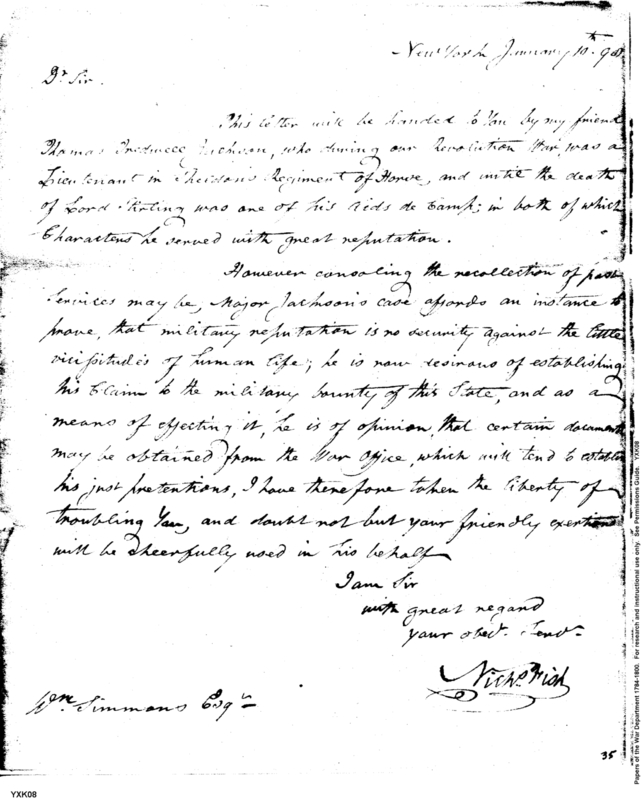 New York January 10th. 98
Dr. Sir.
This letter will be handed to You by my friend
Thomas Tredwell Jackson, who during our Revolution War, was a
Lieutenant in Sheldon's Regiment of Horse, and until the death
of Lord Stirling was one of his Aids de Camp; in both of which
Characters he served with great reputation.
However consoling the recollection of past
Services may be, Major Jackson's case affords an instance to
prove, that military reputation is no security against the little
vicissitudes of human life; he is now desirous of establishing
his Claim to the military bounty of this State, and as a
means of effecting it, he is of opinion, that certain documents
may be obtained from the War Office, which will tend to establish
his just pretentions, I have therefore taken the liberty of
troubling You, and doubt not but your friendly exertions
will be cheerfully used in his behalf
I am Sir
with great regard
your obedt. Servt.
Nichs Fish
Wm Simmons Esqr
35
YXK08
Papers of the War Department 1784-1800. For research and instructional use only. See Permissions Guide. YXK08